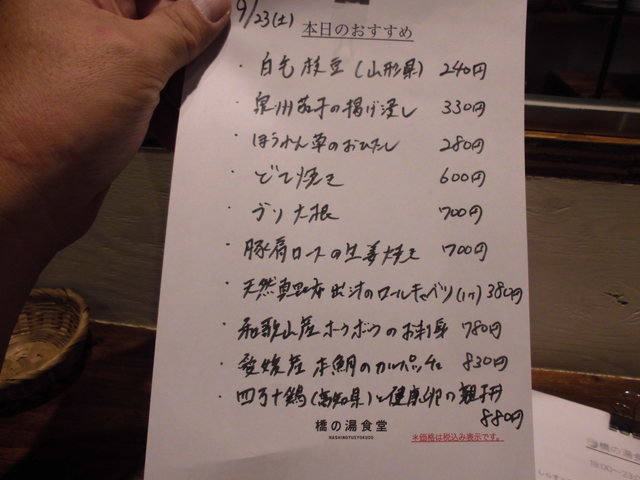 9/23(土)
本日のおすすめ
・白毛枝豆(山形県) 240円
・泉州茄子の揚げ浸し 330円
・ほうれん草のおひたし 280円
・どて焼き 600円
・ブリ大根 700円
・豚肩ロースの生姜焼き 700円
・天然真昆布出汁のロールキャベツ(1ケ) 380円
・和歌山産ホウボウのお刺身 780円
・愛媛産 本鯛のカルパッチョ 830円
・四万十鶏(高知県)と健康卵の親子丼
880円
橋の湯食堂
HASHINOYUSYOKUDO
※価格は税込み表示です。
橋の湯食
18:00~23